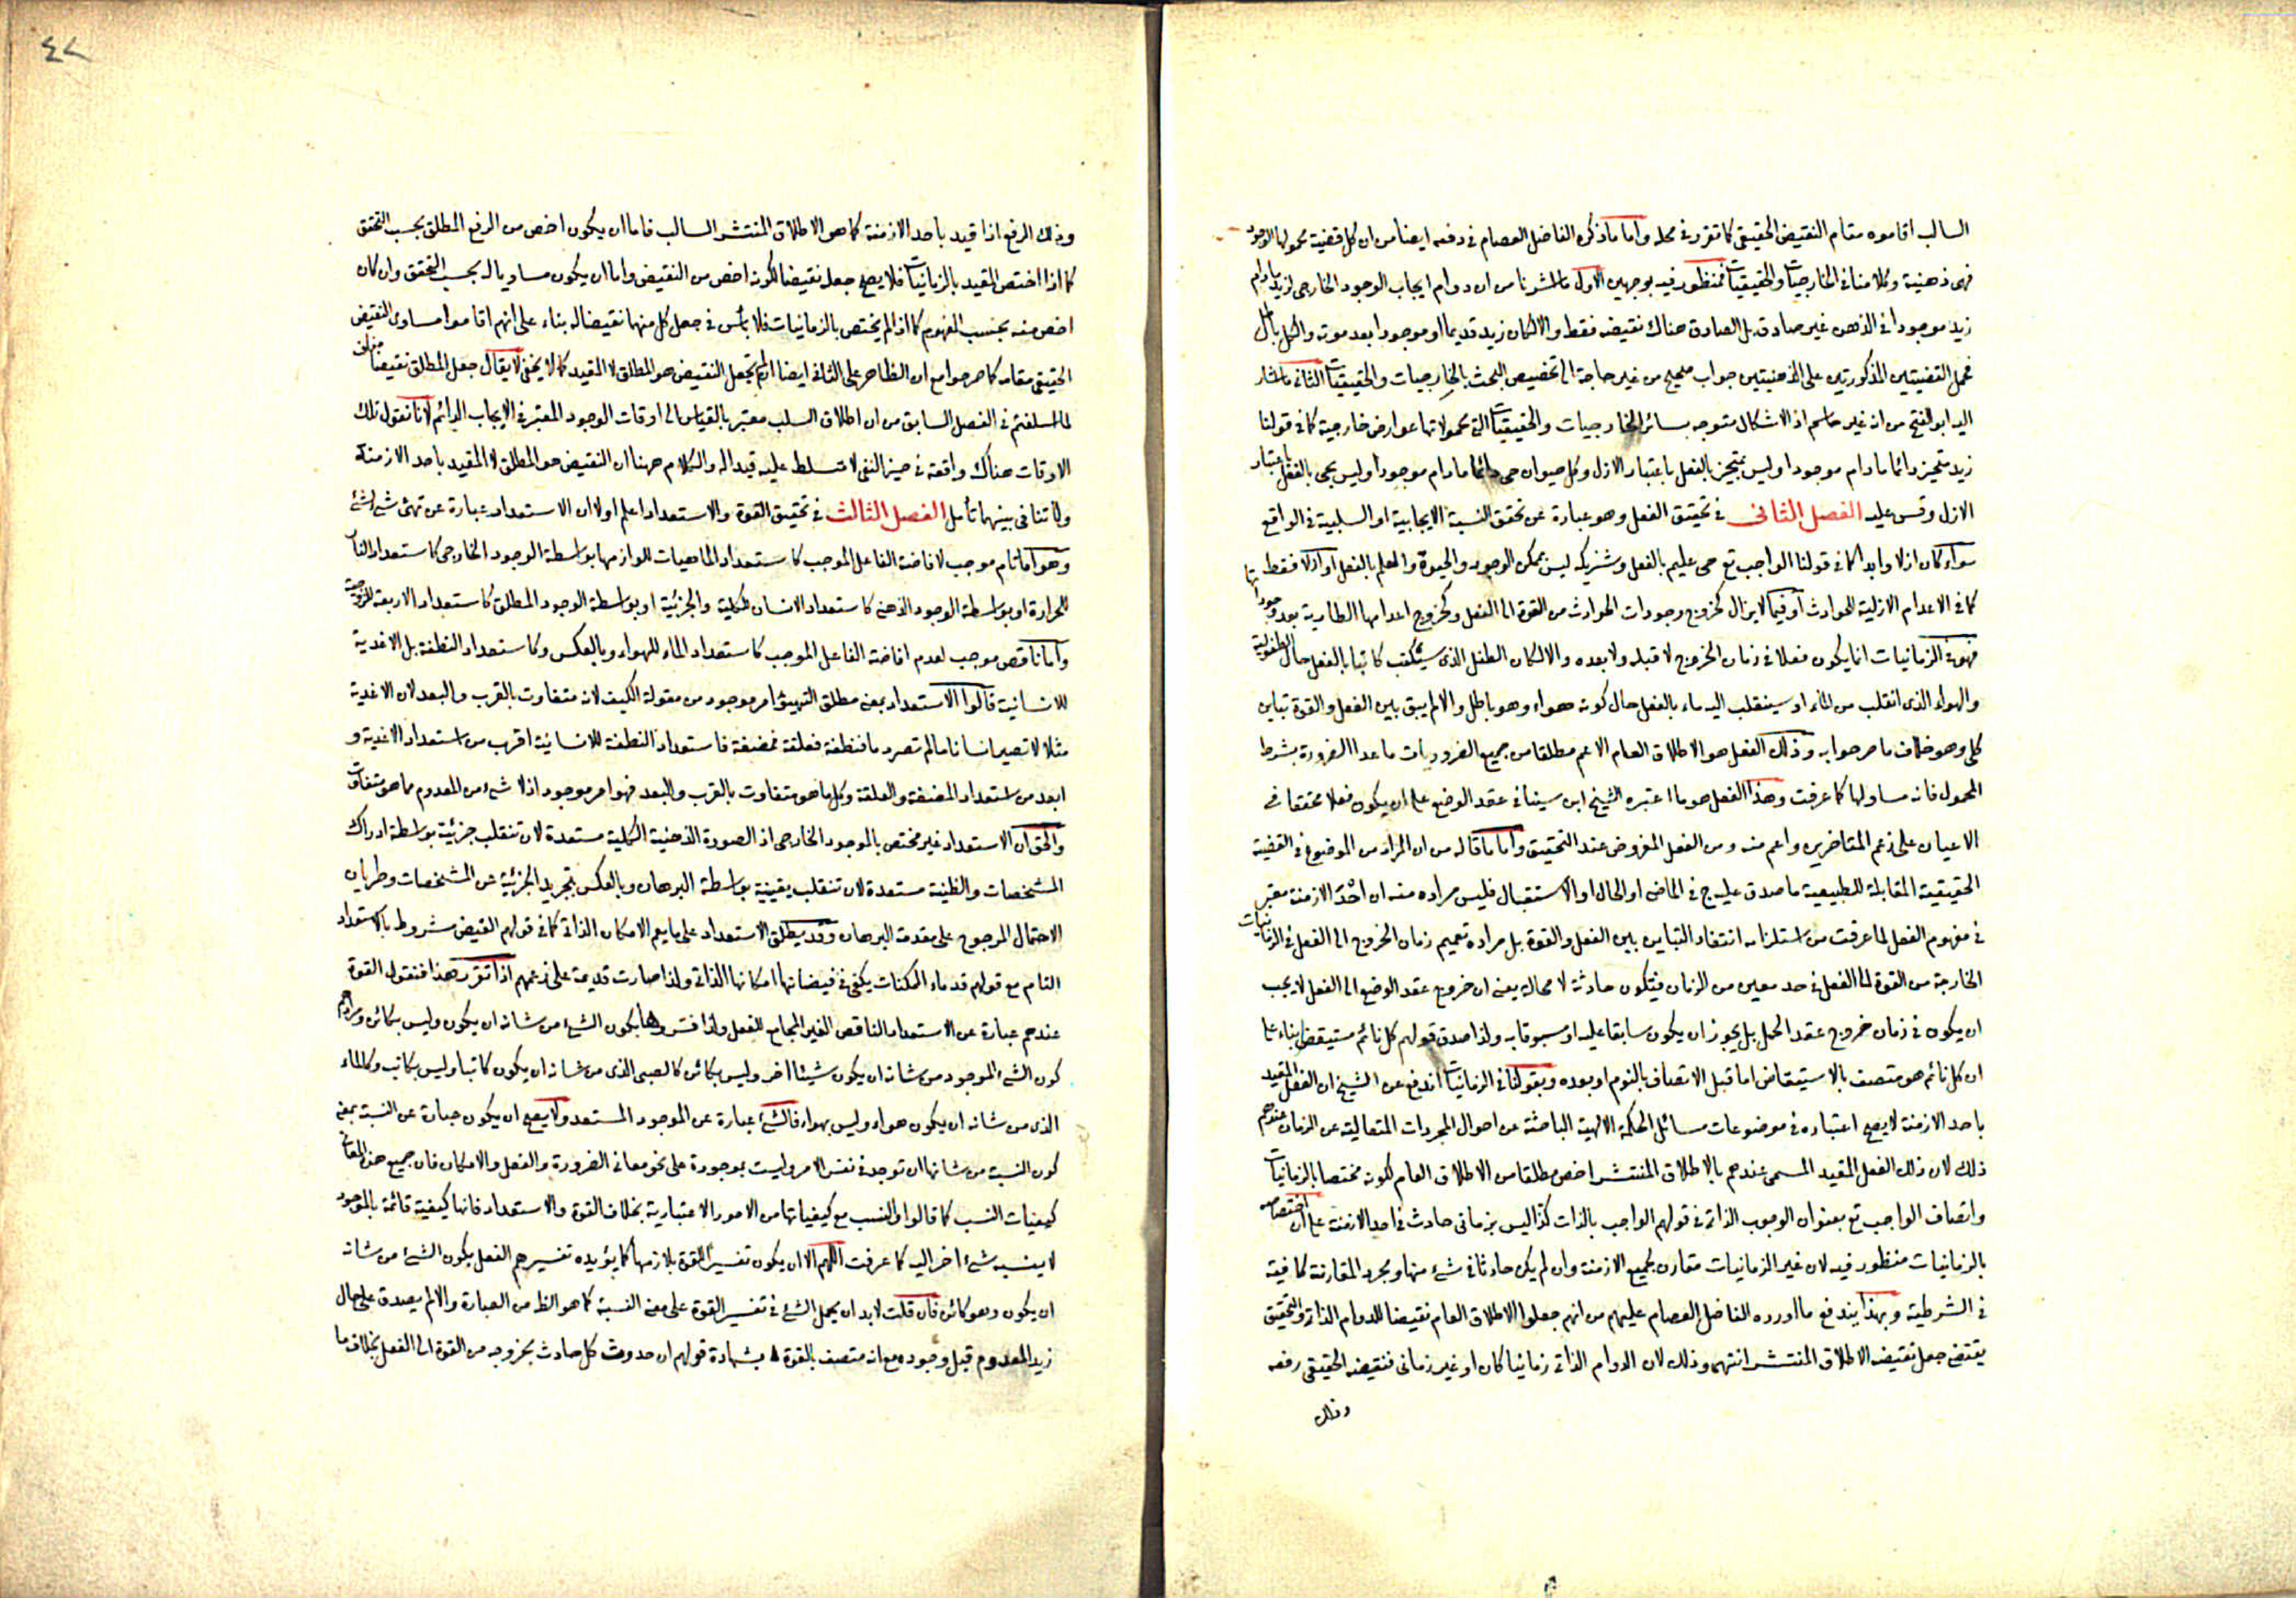 السالب اقاموه مقام النقيض الحقيقى كما تقرر فى محله واما ما ذكره الفاضل العصام فى دفعه ايضا من ان كل قضية محمولها الوجود
فهى ذهنية وكلامنا فى الخارجيات والحقيقيات فمنظور فيه بوجهين الاول ما اشرنا من ان دوام ايجاب الوجود الخارجى لزيد مادام
زيد موجودا فى الذهن غير صادق بل الصادق هناك نقيضه فقط والا لكان زيد قديما او موجودا بعد موته والكل باطل
فحمل القضيتين المذكورتين على الذهنيتين جواب صحيح من غير حاجة الى تخصيص البحث بالخارجيات والحقيقيات الثانى ما اشار
اليه ابو الفتح من انه غير حاسم اذ الاشكال متوجه بسائر الخارجيات والحقيقيات التى محمولاتها عوارض خارجية كما فى قولنا
زيد متحيز دائما مادام موجودا وليس بمتحيز بالفعل باعتبار الازل وكل حيوان حى دائما مادام موجودا وليس بحى بالفعل باعتبار
الازل وقس عليه الفصل الثانى فى تحقيق الفعل وهو عبارة عن تحقق النسبة الايجابية او السلبية فى الواقع
سواء كان ازلا وابدا كما فى قولنا الواجب تع حى عليم بالفعل وشريكه ليس بممكن الوجود والحيوة والعلم بالفعل او ازلا فقط
كما فى الاعدام الازلية للحوادث او فيما لا يزال كخروج وجودات الحوادث من القوة الى الفعل وكخروج اعدامها الطارية بعد وجوداتها
فهو فى الزمانيات انما يكون فعلا فى زمان الخروج لا قبله ولا بعده والا لكان الطفل الذى سيكتب كاتبا بالفعل حال الطفولية
والهواء الذى انقلب من الماء او سينقلب اليه ماء بالفعل حال كونه هواء وهو باطل والا لم يبق بين الفعل والقوة تباين
كلى وهو خلاف ما صرحوا به وذلك الفعل هو الاطلاق العام الاعم مطلقا من جميع الضروريات ماعدا الضرورة بشرط
المحمول فانه مساو لها كما عرفت وهذا الفعل هو ما اعتبره الشيخ ابن سينا فى عقد الوضع على ان يكون فعلا محققا فى
الاعيان على زعم المتاخرين واعم منه ومن الفعل المفروض عند التحقيق واما ما قاله من ان المراد من الموضوع فى القضية
الحقيقية المقابلة للطبيعية ما صدق عليه ج فى الماضى او الحال او الاستقبال فليس مراده منه ان احد الازمنة معتبر
فى مفهوم الفعل لما عرفت من استلزامه انتفاء التباين بين الفعل والقوة بل مراده تعميم زمان الخروج الى الفعل فى الزمانيات
الخارجة من القوة الى الفعل فى حد معين من الزمان فيكون حادثة لا محالة يعنى ان خروج عقد الوضع الى الفعل لا يجب
ان يكون فى زمان خروج عقد الحمل بل يجوز ان يكون سابقا عليه او مسبوقا به ولذا صدق قولهم كل نائم مستيقظ بناء على
ان كل نائم هو متصف بالاستيقاظ اما قبل الاتصاف بالنوم او بعده وبقولنا فى الزمانيات اندفع عن الشيخ ان الفعل المقيد
باحد الازمنة لا يصح اعتباره فى موضوعات مسائل الحكمة الالهية الباحثة عن احوال المجردات المتعالية عن الزمان عندهم
ذلك لان ذلك الفعل المقيد المسمى عندهم بالاطلاق المنتشر اخص مطلقا من الاطلاق العام لكونه مختصا بالزمانيات
واتصاف الواجب تع بعنوان الوجوب الذاتى فى قولهم الواجب بالذات كذا ليس بزمانى حادث فى احد الازمنة على ان اختصاصه
بالزمانيات منظور فيه لان غير الزمانيات مقارن لجميع الازمنة وان لم يكن حادثا فى شىء منها ومجرد المقارنة كافية
فى الشرطية وبهذا يندفع ما اورده الفاضل العصام عليهم من انهم جعلوا الاطلاق العام نقيضا للدوام الذاتى والتحقيق
يقتضى جعل نقيضه الاطلاق المنتشر انتهى وذلك لان الدوام الذاتى زمانيا كان او غير زمانى فنقيضه الحقيقى رفعه
وذلك
٤٢
وذلك الرفع اذا قيد باحد الازمنة كما هو الاطلاق المنتشر السالب فاما ان يكون اخص من الرفع المطلق بحسب التحقق
كما اذا اختص المقيد بالزمانيات فلا يصح جعله نقيضا لكونه اخص من النقيض واما ان يكون مساويا له بحسب التحقق وان كان
اخص منه بحسب المفهوم كما اذا لم يختص بالزمانيات فلا بأس فى جعل كل منهما نقيضا له بناء على انهم اقاموا مساوى النقيض
الحقيقى مقامه كما صرحوا مع ان الظاهر على الثانى ايضا ان يجعل النقيض هو المطلق لا المقيد كما لا يخفى لا يقال جعل المطلق نقيضا مخالف
لما اسلفتم فى الفصل السابق من ان اطلاق السلب معتبر بالقياس الى اوقات الوجود المعتبر فى الايجاب الدائم لانا نقول تلك
الاوقات هناك واقعة فى حيز النفى لا تسلط عليه قيد اله والكلام ههنا ان النقيض هو المطلق لا المقيد باحد الازمنة
ولا تنافى بينهما تأمل الفصل الثالث فى تحقيق القوة والاستعداد اعلم اولا ان الاستعداد عبارة عن تهيئ شىء لشىء
وهو اما تام موجب لافاضة الفاعل الموجب كاستعداد الماهيات للوازمها بواسطة الوجود الخارجى كاستعداد النار
للحرارة او بواسطة الوجود الذهنى كاستعداد الانسان للكلية والجزئية او بواسطة الوجود المطلق كاستعداد الاربعة للزوجية
واما ناقص موجب لعدم افاضة الفاعل الموجب كاستعداد الماء للهواء وبالعكس وكاستعداد النطفة بل الاغذية
للانسانية قالوا الاستعداد بمعنى مطلق التهيؤ امر موجود من مقولة الكيف لانه متفاوت بالقرب والبعد لان الاغذية
مثلا لا تصير انسانا ما لم تصر دما فنطفة فعلقة فمضغة فاستعداد النطفة للانسانية اقرب من استعداد الاغذية و
ابعد من استعداد المضغة والعلقة وكل ما هو متفاوت بالقرب والبعد فهو امر موجود اذ لا شىء من المعدوم مما هو متفاوت
والحق ان الاستعداد غير مختص بالموجود الخارجى اذ الصورة الذهنية الكلية مستعدة لان تنقلب جزئية بواسطة ادراك
المشخصات والظنية مستعدة لان تنقلب يقينية بواسطة البرهان وبالعكس بتجريد الجزئية عن المشخصات وطريان
الاحتمال المرجوح على مقدمة البرهان وقد يطلق الاستعداد على ما يعم الامكان الذاتى كما فى قولهم الفيض مشروط بالاستعداد
التام مع قولهم قدماء الممكنات يكفى فى فيضانها امكانها الذاتى ولذا صارت قديمة على زعمهم اذا تقرر هذا فنقول القوة
عندهم عبارة عن الاستعداد الناقص الغير المجامع للفعل ولذا فسروها بكون الشىء من شانه ان يكون وليس بكائن ومرادهم
كون الشىء الموجود من شانه ان يكون شيئا اخر وليس بكائن كالصبى الذى من شانه ان يكون كاتبا وليس بكاتب وكالماء
الذى من شانه ان يكون هواء وليس بهواء فالشىء عبارة عن الموجود المستعد ولا يصح ان يكون عبارة عن النسبة بمعنى
كون النسبة من شانها ان توجد فى نفس الامر وليست بموجودة على نحو معانى الضرورة والفعل والامكان فان جميع هذه المعانى
كيفيات النسب كما قالوا والنسب مع كيفياتها من الامور الاعتبارية بخلاف القوة والاستعداد فانها كيفية قائمة بالموجود
لا ينسبه شىء اخر اليه كما عرفت اللهم الا ان يكون تفسير القوة بلازمها كما يؤيده تفسيرهم الفعل بكون الشىء من شانه
ان يكون وهو كائن فان قلت لابد ان يحمل الشىء فى تفسير القوة على معنى النسبة كما هو الظ من العبارة والا لم يصدق على حال
زيد المعدوم قبل وجوده مع انه متصف بالقوة بشهادة قولهم ان حدوث كل حادث بخروجه من القوة الى الفعل بخلاف ما